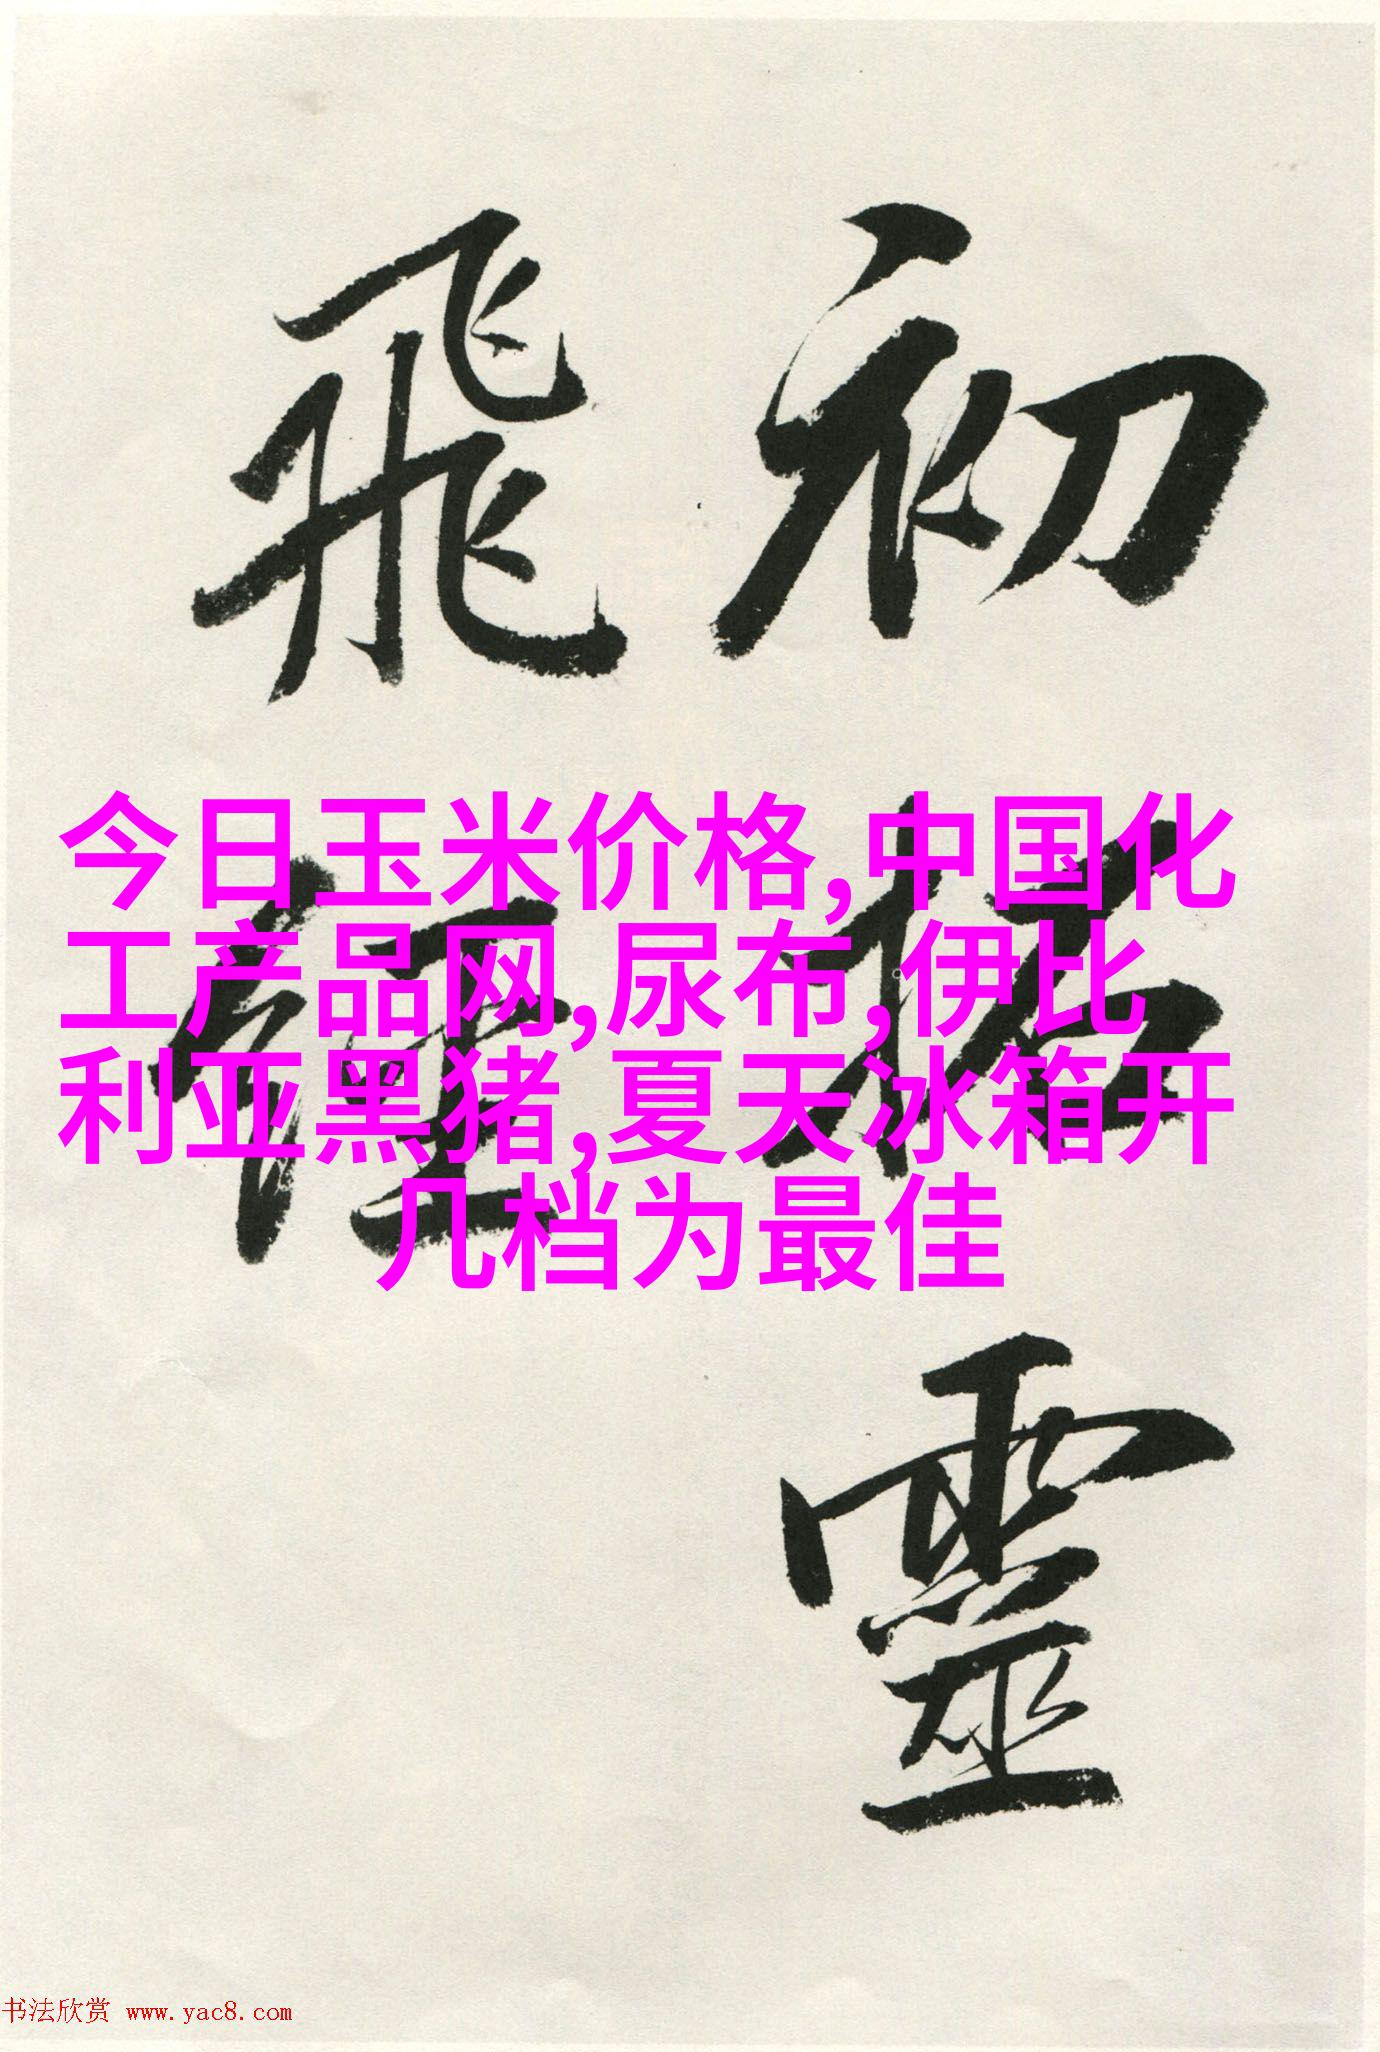 初拓靈
飛經
今日玉米价格,中国化
工产品网,尿布,伊比
利亚黑猪,夏天冰箱开
几档为最佳
书法欣赏 www.yac8.com